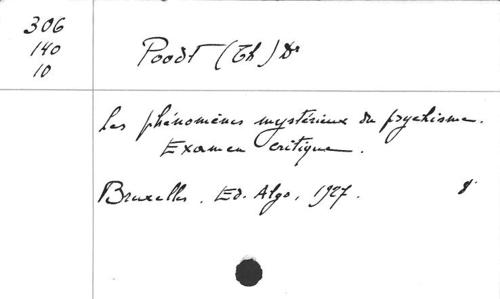 306
140
10
Poodt (Th) Dr
Les phénomènes mystérieux du psychisme.
Examen critique.
Bruxelles. Ed. Algo, 1927. 8°